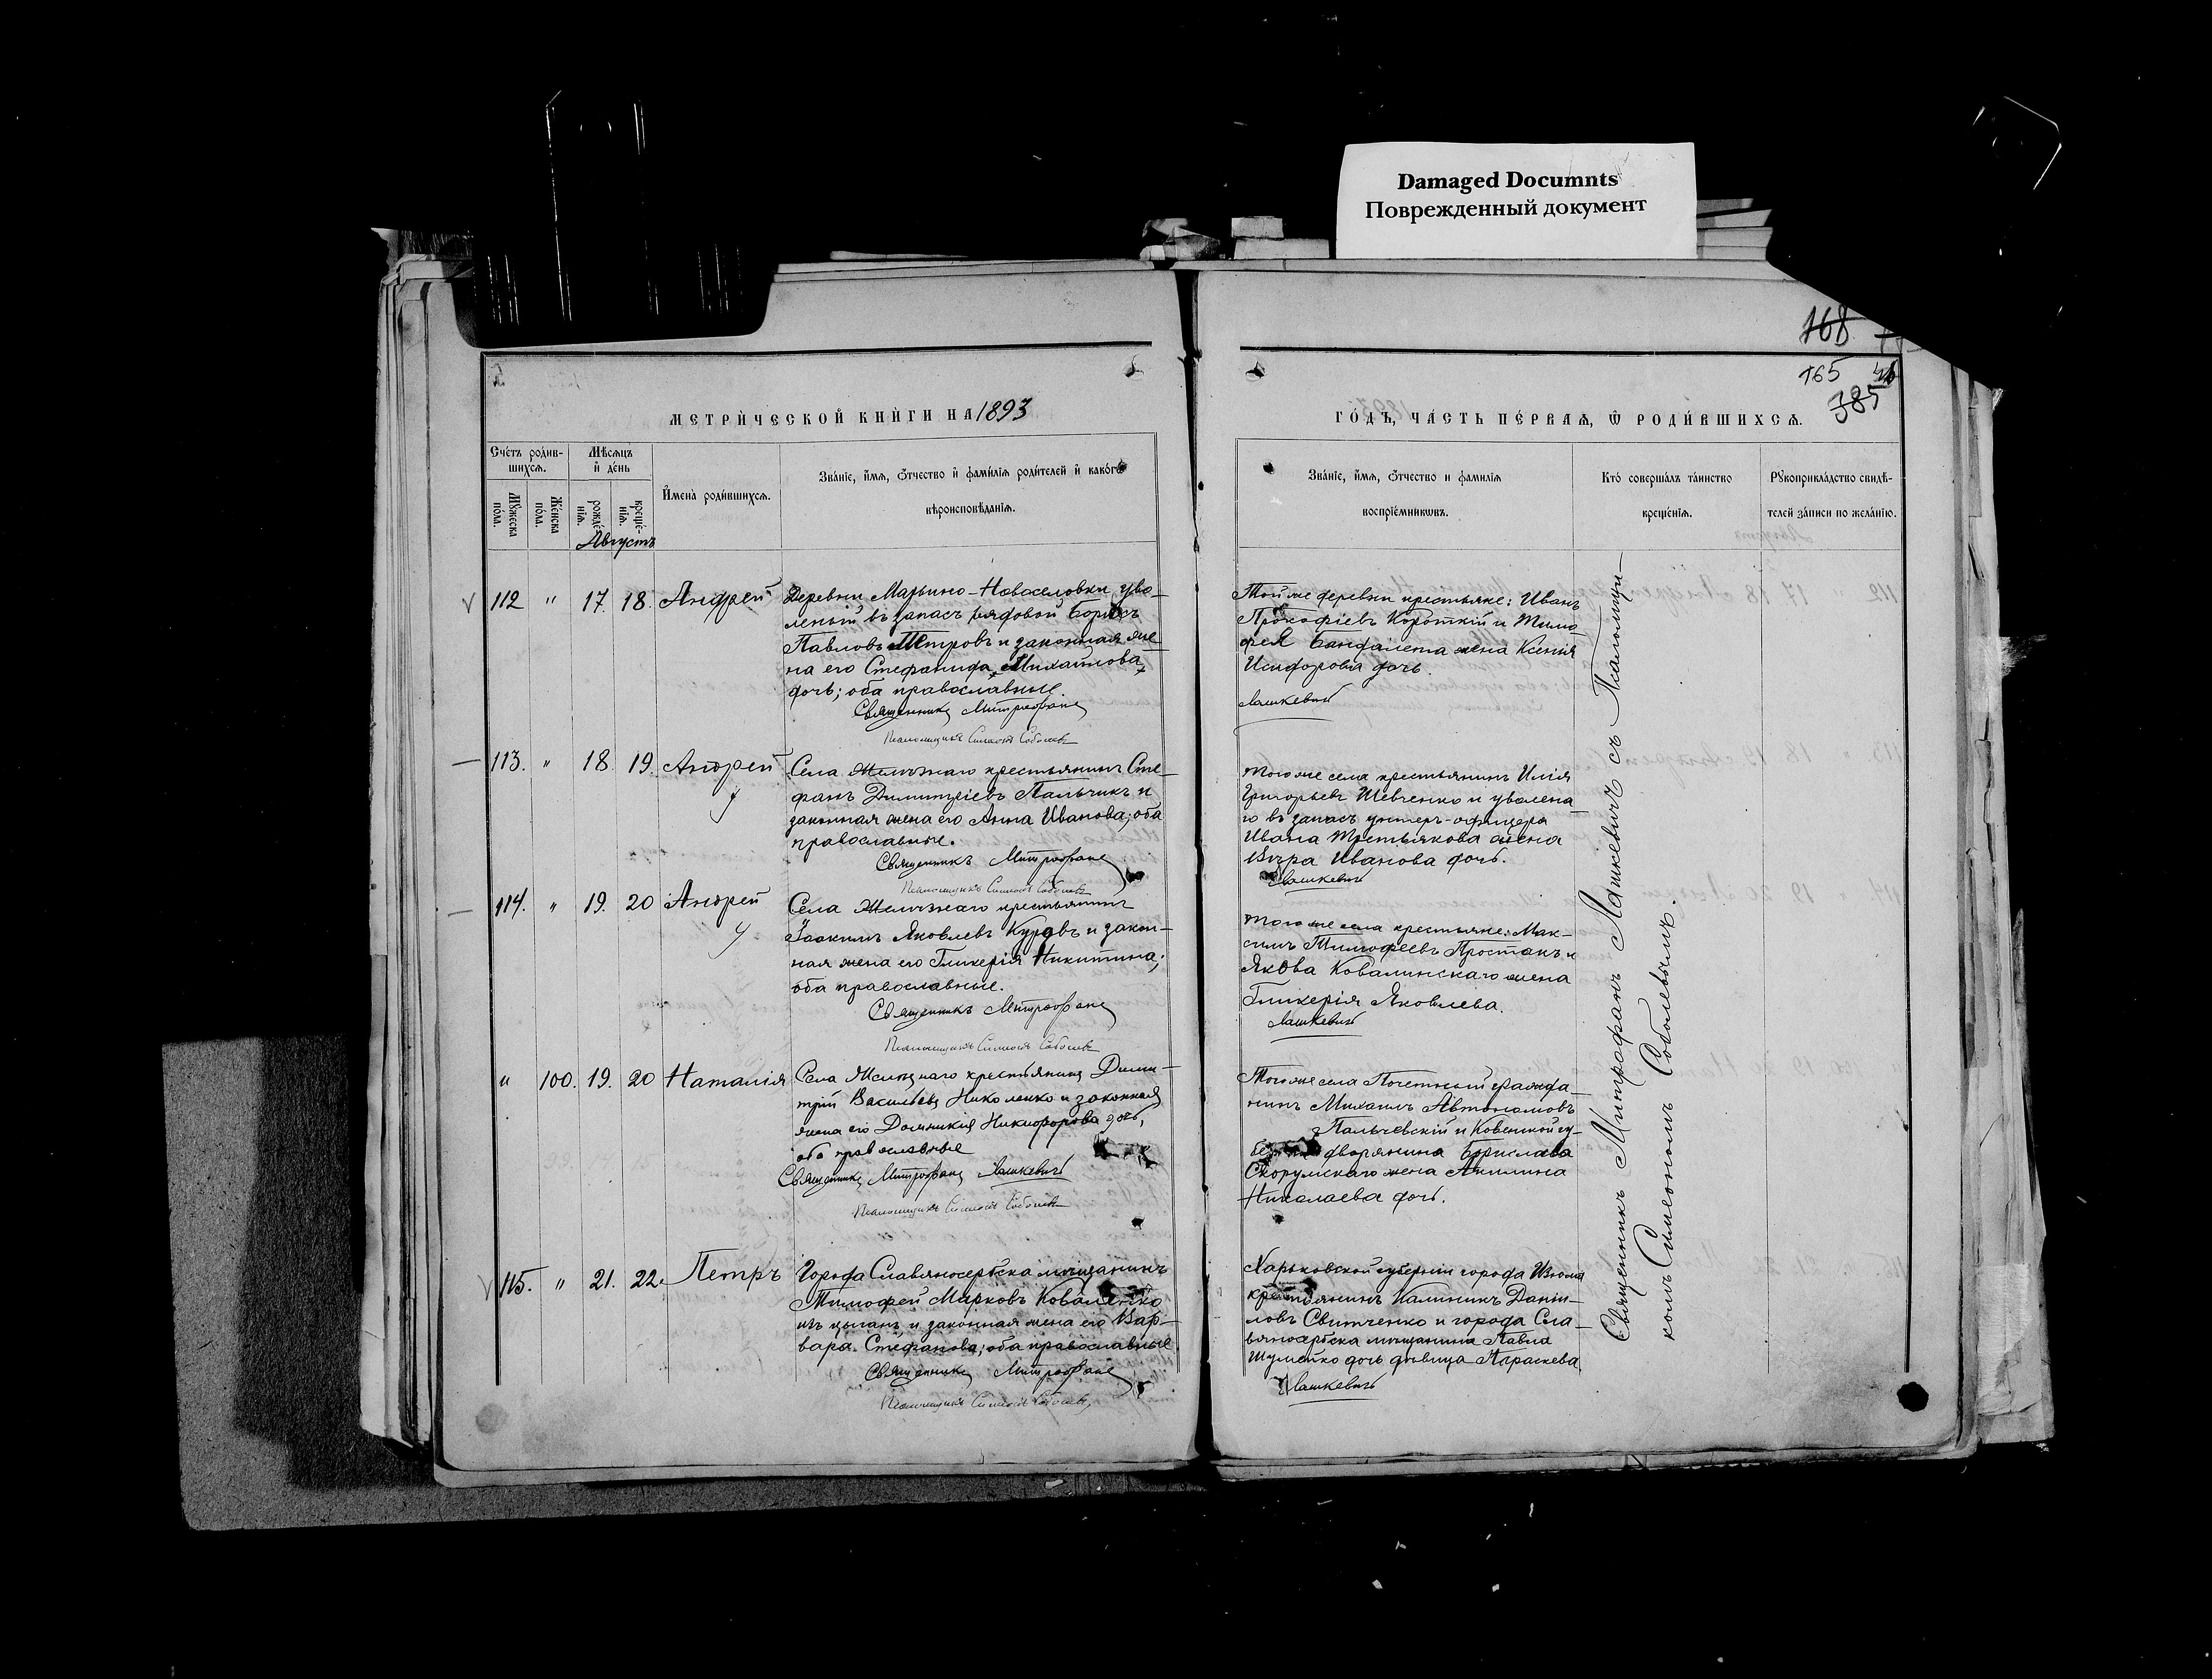 Damaged Documnts
Поврежденный документ
168
165
385
МЕТРИ́ЧЕСКОЙ КНИ́ГИ НА 1893
ГО́ДЪ, ЧА́СТЬ ПЕ́РВАЯ, Ѿ РОДИ́ВШИХСЯ.
Сче́тъ роди́в-
шихся.
Мѣсяцъ
и де́нь
Мꙋжеска
по́ла.
Же́нска
по́ла.
рожде́-
нія.
креще́-
нія.
Августъ
И҆мена̀ роди́вшихся.
Зва́ніе, и҆́мя, ѻ҆́тчество и҆ фами́лія роди́телей и҆ како́гѡ
вѣроисповѣ́данія.
Зва́ніе, и҆́мя, ѻ҆́тчество и фамилія
воспріе́мникѡвъ.
Кто́ соверша́лъ та́инство
креще́нія.
Рꙋкоприкла́дство свидѣ́-
телей за́писи по жела́нію.
112 " 17. 18. Андрей
Деревни Марьино-Новоселовки уво-
леный въ запасъ рядовой Борисъ
Павловъ Петровъ и законная же-
на его Стефанида Михайлова
дочь; оба православные.
Священникъ Митрофанъ
Псаломщикъ Симеонъ Соболевъ
Той же деревни крестьяне: Иванъ
Прокофіевъ Короткій и Тимо-
фея Банфалета жена Ксенія
Исидорова дочь.
Лашкевичъ
113. " 18. 19. Андрей
Села Желѣзнаго крестьянинъ Сте-
фанъ Димитріевъ Пальчикъ и
законная жена его Анна Иванова; оба
православные.
Священникъ Митрофанъ
Псаломщикъ Симеонъ Соболевъ
Того же села крестьянинъ Илія
Григорьевъ Шевченко и уволена-
го въ запасъ унтеръ-офицера
Ивана Третьякова жена
Вѣра Иванова дочь.
Лашкевичъ
114. " 19. 20 Андрей
Села Желѣзнаго крестьянинъ
Іоакимъ Яковлевъ Куровъ и закон-
ная жена его Гликерія Никитина;
оба православные.
Священникъ Митрофанъ
Псаломщикъ Симеонъ Соболевъ
Того же села крестьяне: Мак-
симъ Тимофеевъ Простакъ и
Якова Ковалинскаго жена
Гликерія Яковлева.
Лашкевичъ
" 100. 19. 20 Наталія
Села Желѣзнаго крестьянинъ Дими-
трій Васильевъ Николенко и законная
жена его Домникія Никифорова дочь,
оба православные
Священникъ Митрофанъ Лашкевичъ
Псаломщикъ Симеонъ Соболевъ
Того же села Почетный гражда-
нинъ Михаилъ Автономовъ
Пальчевскій и Ковенской гу-
дворянина Борислава
Скорумскаго жена Акилина
Николаева дочь.
115. " 21. 22. Петръ
Города Славяносербска мѣщанинъ
Тимофей Марковъ Коваленко
изъ цыганъ и законная жена его Вар-
вара Стефанова; оба православные
Священникъ Митрофанъ
Псаломщикъ Симеонъ Соболевъ
Харьковской губерніи города Изюма
крестьянинъ Калиникъ Даніи-
ловъ Свитченко и города Сла-
вяносербска мѣщанина Павла
Шумейко дочь дѣвица Параскева
Лашкевичъ
Священникъ Митрофанъ Лашкевичъ съ Псаломщи-
комъ Симеономъ Соболевымъ.